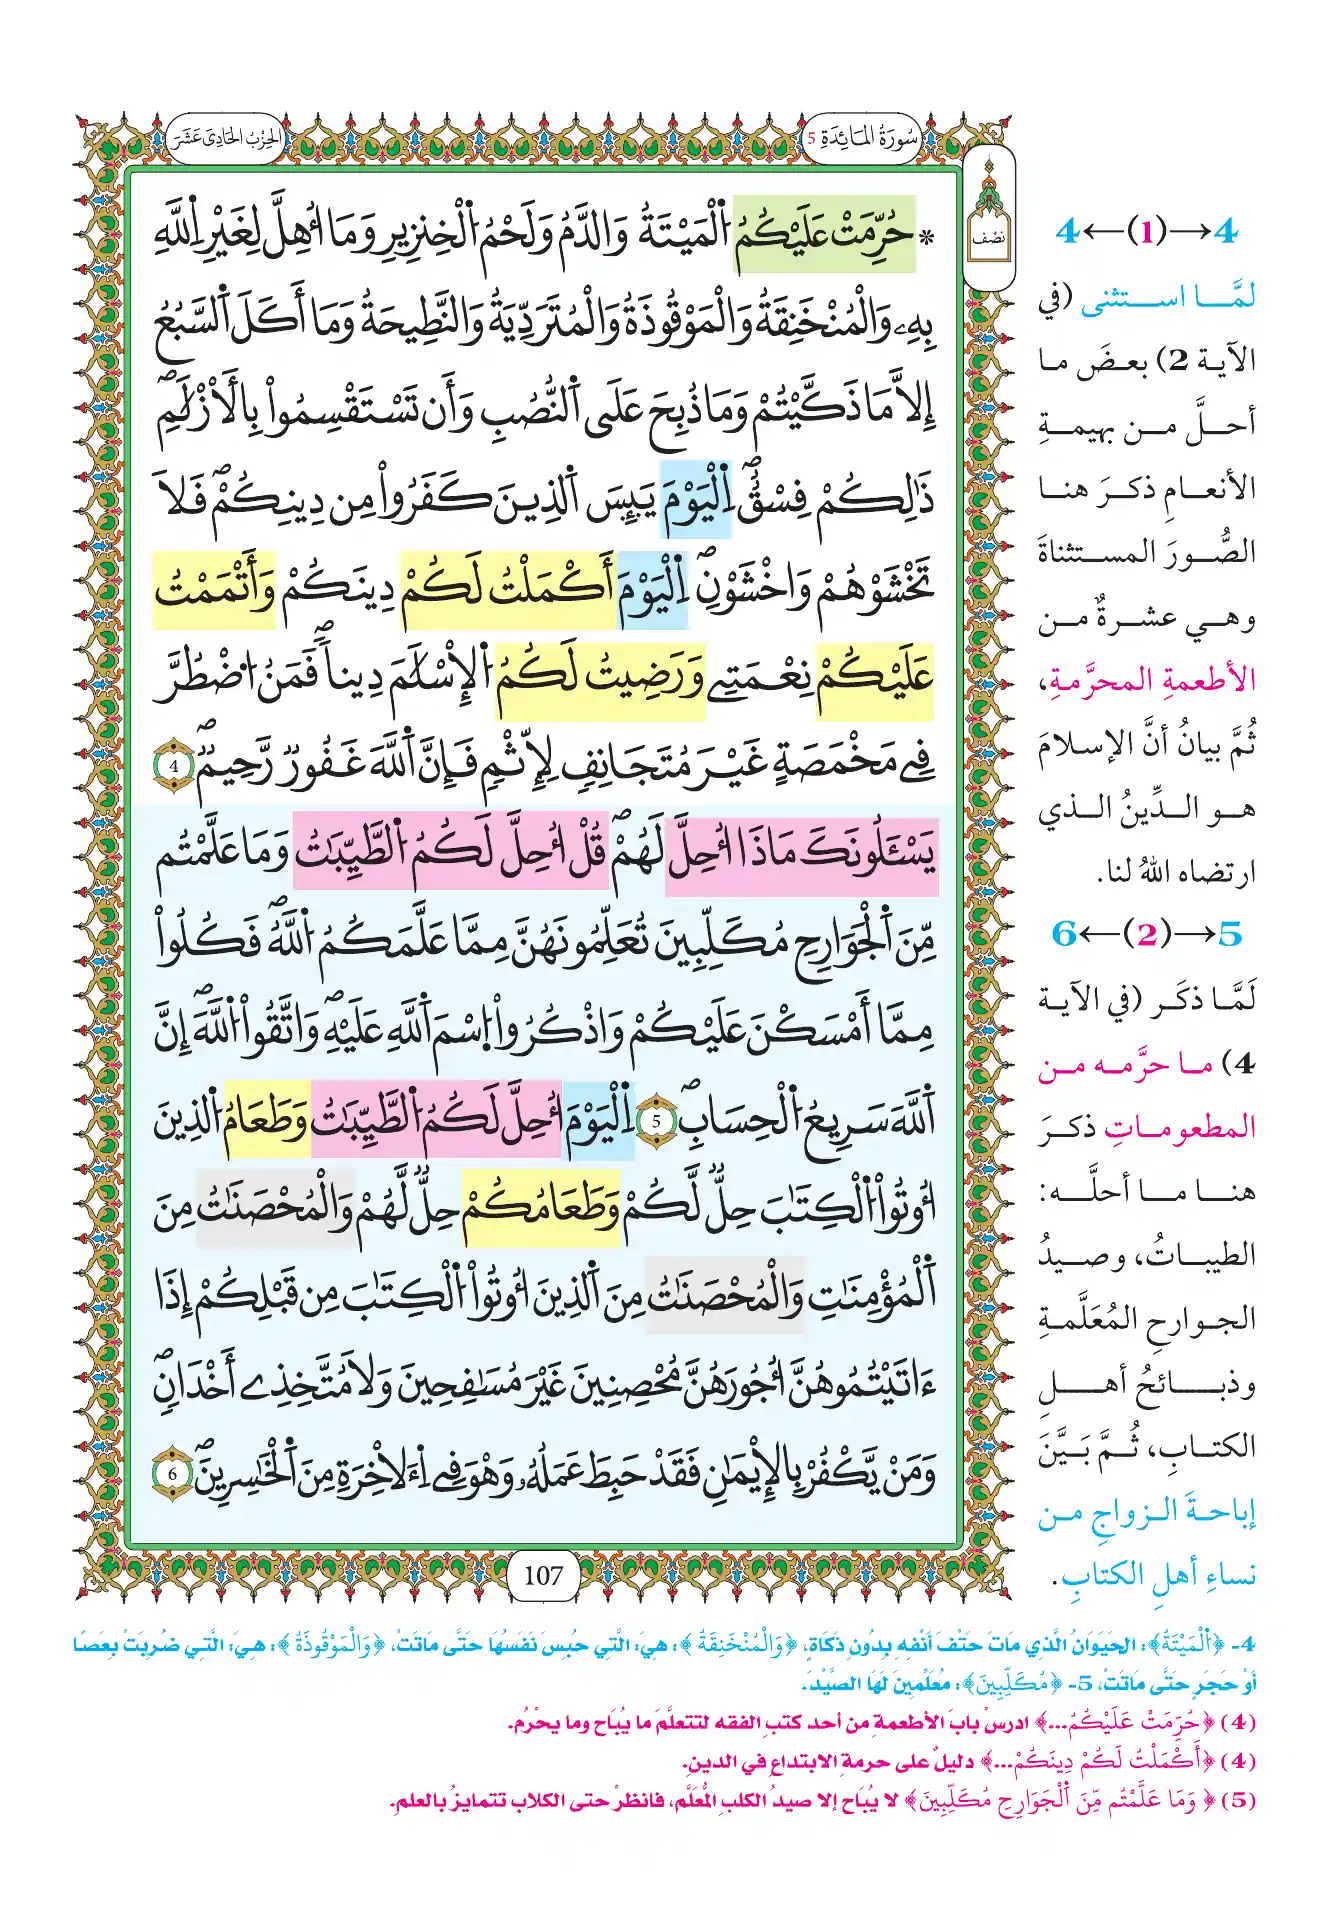 سُورَةُ المَائِدَةِ 5
الحِزْبُ الحَادِى عَشَرَ
نصف
* حُرِّمَتْ عَلَيْكُمُ اُ۬لْمَيْتَةُ وَالدَّمُ وَلَحْمُ اُ۬لْخِنزِيرِ وَمَا أُهِلَّ لِغَيْرِ اِ۬للَّهِ
بِهِۦ وَالْمُنْخَنِقَةُ وَالْمَوْقُوذَةُ وَالْمُتَرَدِّيَةُ وَالنَّطِيحَةُ وَمَا أَكَلَ اَ۬لسَّبُعُ
إِلَّا مَا ذَكَّيْتُمْ وَمَا ذُبِحَ عَلَى اَ۬لنُّصُبِ وَأَن تَسْتَقْسِمُواْ بِالَازْلَٰمِۖ
ذَٰلِكُمْ فِسْقٌۖ اِ۬لْيَوْمَ يَئِسَ اَ۬لذِينَ كَفَرُواْ مِن دِينِكُمْۖ فَلَا
تَخْشَوْهُمْ وَاخْشَوْنِۖ اِ۬لْيَوْمَ أَكْمَلْتُ لَكُمْ دِينَكُمْ وَأَتْمَمْتُ
عَلَيْكُمْ نِعْمَتِے وَرَضِيتُ لَكُمُ اُ۬لْإِسْلَٰمَ دِيناٗۖ فَمَنُ اُ۟ضْطُرَّ
فِے مَخْمَصَةٍ غَيْرَ مُتَجَانِفٖ لِإِثْمٖ فَإِنَّ اَ۬للَّهَ غَفُورٞ رَّحِيمٞۖ 4
يَسْـَٔلُونَكَ مَاذَا أُحِلَّ لَهُمْۖ قُلُ ا۟حِلَّ لَكُمُ اُ۬لطَّيِّبَٰتُ وَمَا عَلَّمْتُم
مِّنَ اَ۬لْجَوَارِحِ مُكَلِّبِينَ تُعَلِّمُونَهُنَّ مِمَّا عَلَّمَكُمُ اُ۬للَّهُۖ فَكُلُواْ
مِمَّا أَمْسَكْنَ عَلَيْكُمْ وَاذْكُرُواْ اُ۪سْمَ اَ۬للَّهِ عَلَيْهِۖ وَاتَّقُواْ اُ۬للَّهَۖ إِنَّ
اَ۬للَّهَ سَرِيعُ اُ۬لْحِسَابِۖ 5 اِ۬لْيَوْمَ أُحِلَّ لَكُمُ اُ۬لطَّيِّبَٰتُ وَطَعَامُ اُ۬لذِينَ
أُوتُواْ اُ۬لْكِتَٰبَ حِلّٞ لَّكُمْ وَطَعَامُكُمْ حِلّٞ لَّهُمْ وَالْمُحْصَنَٰتُ مِنَ
اَ۬لْمُؤْمِنَٰتِ وَالْمُحْصَنَٰتُ مِنَ اَ۬لذِينَ أُوتُواْ اُ۬لْكِتَٰبَ مِن قَبْلِكُمْ إِذَا
ءَاتَيْتُمُوهُنَّ أُجُورَهُنَّ مُحْصِنِينَ غَيْرَ مُسَٰفِحِينَ وَلَا مُتَّخِذِے أَخْدَانٖۖ
وَمَنْ يَّكْفُرْ بِالْإِيمَٰنِ فَقَدْ حَبِطَ عَمَلُهُۥ وَهْوَ فِے اِ۬ءَلَاخِرَةِ مِنَ اَ۬لْخَٰسِرِينَۖ 6
107
4←(1)→4
لمَّا استثنى (في
الآية 2) بعضَ ما
أحلَّ من بهيمةِ
الأنعامِ ذكرَ هنا
الصُّورَ المستثناةَ
وهي عشرةٌ من
الأطعمةِ المحرَّمةِ،
ثُمَّ بيانُ أنَّ الإسلامَ
هو الدِّينُ الذي
ارتضاه اللهُ لنا.
5←(2)→6
لَمَّا ذكَر (في الآية
4) ما حرَّمه من
المطعوماتِ ذكرَ
هنا ما أحلَّه:
الطيباتُ، وصيدُ
الجوارحِ المُعَلَّمةِ
وذبائحُ أهلِ
الكتابِ، ثُمَّ بَيَّنَ
إباحةَ الزواجِ من
نساءِ أهلِ الكتابِ.
4- ﴿اُ۬لْمَيْتَةُ﴾: الحَيَوَانُ الَّذِي مَاتَ حَتْفَ أَنْفِهِ بِدُونِ ذَكَاةٍ، ﴿وَالْمُنْخَنِقَةُ﴾: هِيَ: الَّتِي حُبِسَ نَفَسُهَا حَتَّى مَاتَتْ، ﴿وَالْمَوْقُوذَةُ﴾: هِيَ: الَّتِي ضُرِبَتْ بِعَصًا
أَوْ حَجَرٍ حَتَّى مَاتَتْ، 5- ﴿مُكَلِّبِينَ﴾: مُعَلِّمِينَ لَهَا الصَّيْدَ.
(4) ﴿حُرِّمَتْ عَلَيْكُمُ...﴾ ادرسْ بابَ الأطعمةِ من أحد كتبِ الفقه لتتعلَّمَ ما يُبَاح وما يحْرُم.
(4) ﴿أَكْمَلْتُ لَكُمْ دِينَكُمْ...﴾ دليلٌ على حرمةِ الابتداعِ في الدينِ.
(5) ﴿وَمَا عَلَّمْتُم مِّنَ اَ۬لْجَوَارِحِ مُكَلِّبِينَ﴾ لا يُبَاح إلا صيدُ الكلبِ المُعَلَّم، فانظرْ حتى الكلاب تتمايزُ بالعلمِ.